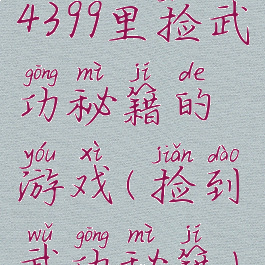 4399里捡武
gōng mì jí de
功秘籍的
yóu xì jiǎn dào
游戏(捡到
wǔ gōng mì jí
武功秘籍)